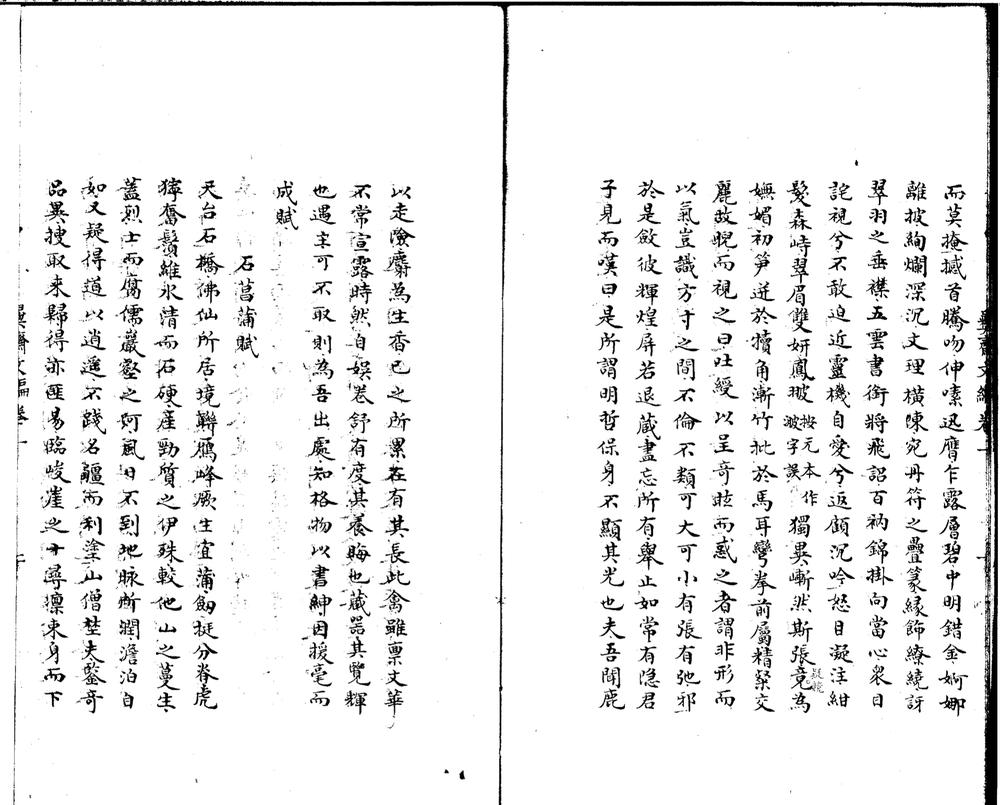 而莫掩撼首騰吻伸嗉迅膺乍露層碧中明錯金婀娜
離披絢爛深沉文理橫陳宛丹符之疊篆緣飾繚繞訝
翠羽之垂襟五雲書銜將飛詔百衲錦掛向當心衆目
詫視兮不敢迫近靈機自愛兮返顧沉吟怒目凝注紺
髮森峙翠眉雙妍鳳玻按元本作玻字誤獨異嶄然斯張竟為
嫵媚初笋迸於犢角漸竹批於馬耳彎拳前屬精粲交
麗故睨而視之曰吐綬以呈奇眩而惑之者謂非形而
以氣豈識方寸之間不倫不類可大可小有張有弛邪
於是斂彼輝煌屏若退藏盡忘所有舉止如常有隱君
子見而嘆曰是所謂明哲保身不顯其光也夫吾聞鹿
以走險麝為生香已之所累在有其長此禽雖禀文華
不常宣露時然自娛卷舒有度其養晦也藏器其覽輝
也遇主可不取則為吾出處知格物以書紳因援毫而
成賦
石菖蒲賦
天台石橋佛仙所居境聯鴈峰厥生宜蒲劒挺分脊虎
獰奮鬚維氷清而石硬產勁質之伊殊較他山之蔓生
蓋烈士而腐儒巖壑之阿風日不到地脉斷澗澹泊自
如又疑得道以逍遥不踐名疆而利塗山僧埜夫鑿奇
品異搜取来歸得亦匪易臨峻崖之十尋凛束身而下